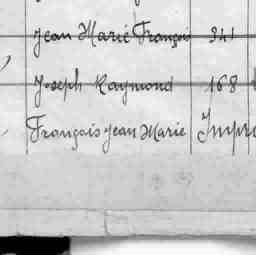 Jean Marie François 341
Joseph Raymond 168
François Jean Marie